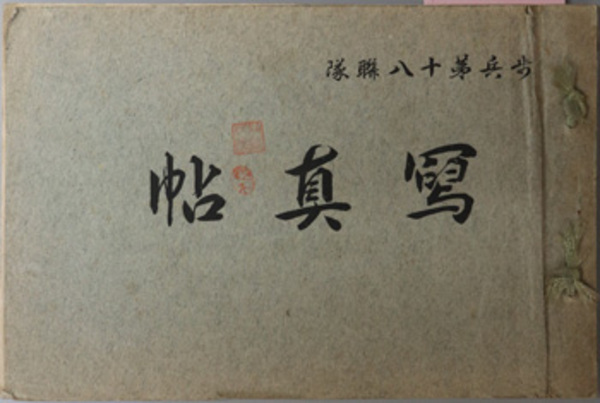 歩兵第十八聯隊
寫真帖